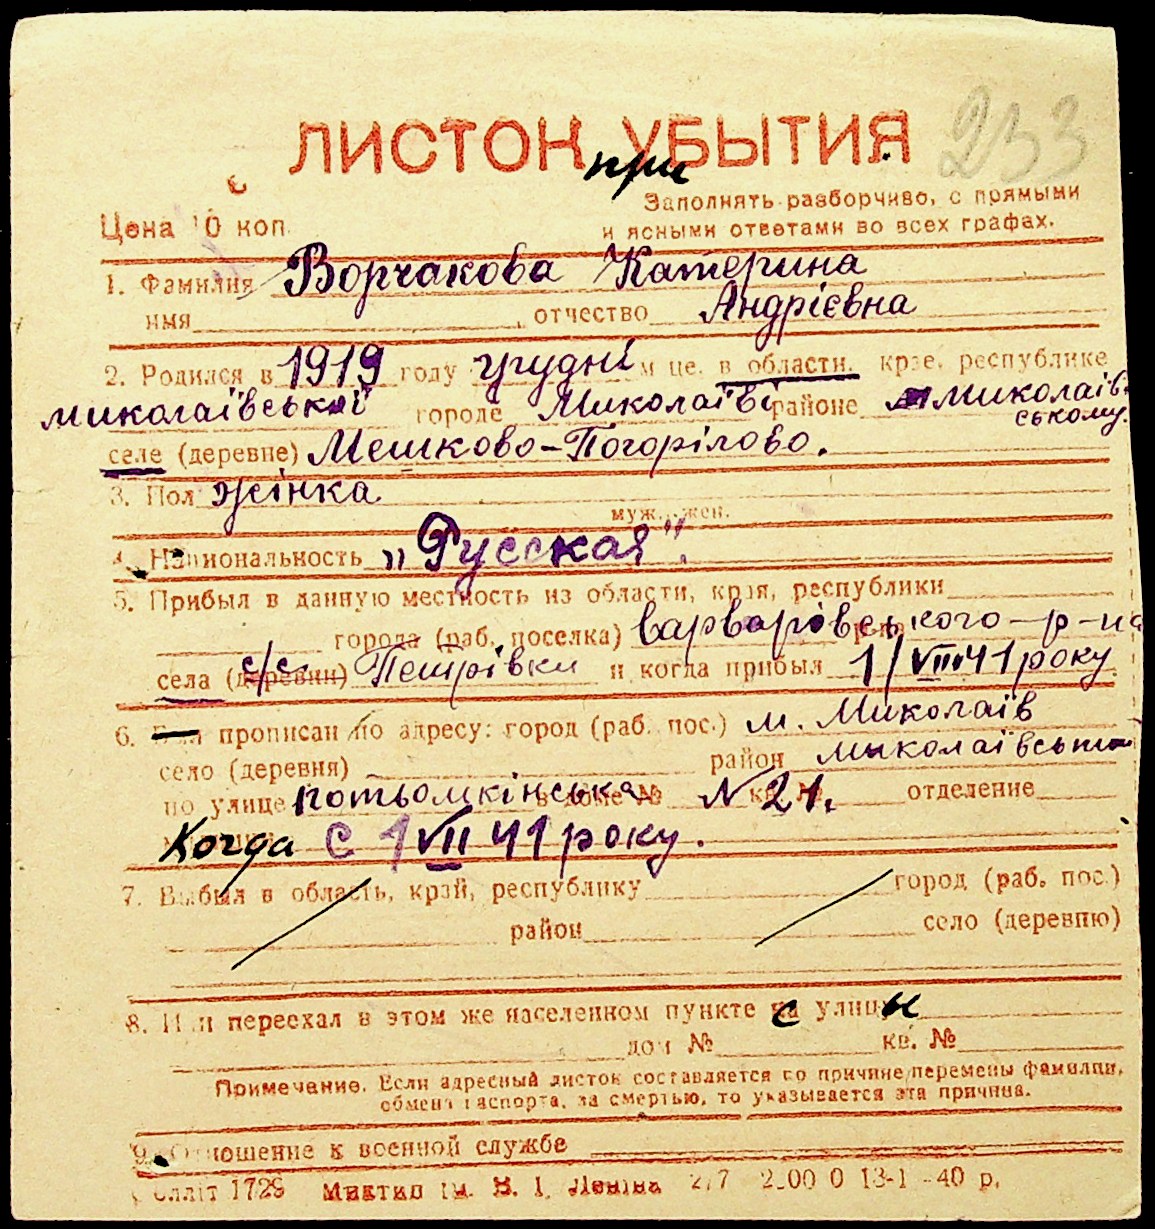 ЛИСТОК УБЫТИЯ 233
при
Заполнять разборчиво, с прямыми
Цена 10 коп. и ясными ответами во всех графах.
1. Фамилия Ворчакова Катерина
имя отчество Андрієвна
2. Родился в 1919 году грудні м-це. в области, крае, республике
миколаївській городе Миколаїві районе миколаїв-
ському.
селе (деревне) Мешково-Погорілово.
3. Пол жінка
муж., жен.
4. Национальность „Русская".
5. Прибыл в данную местность из области, края, республики
города (раб. поселка) варварівського р-на
села (деревни) с/с. Петрівки и когда прибыл 1/VIII 41 року
6. Был прописан по адресу: город (раб. пос.) м. Миколаїв
село (деревня) район миколаївський
по улице потьомкінська в доме № N 21. кв. № отделение
Когда с 1 VII 41 року.
7. Выбыл в область, край, республику город (раб. пос.)
район село (деревню)
8. Или переехал в этом же населенном пункте с улицы
дом № кв. №
Примечание. Если адресный листок составляется по причине перемены фамилии,
обмена паспорта, за смертью, то указывается эта причина.
9. Отношение к военной службе
Облліт 1729 Миктип ім. В. І. Леніна 217 200 0 13-1-40 р.